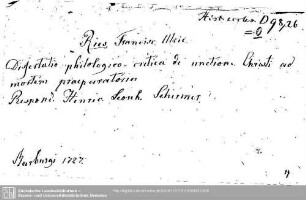 Hist. eccles. D 98, 26
=0
Ries, Francisc. Ulric.
Dissertatio philologico-critica de unctione Christi ad
mortem praeparatoria
Respond. Henric. Leonh. Schirmer.
Marburgi 1727.
Sächsische Landesbibliothek -
Staats- und Universitätsbibliothek Dresden